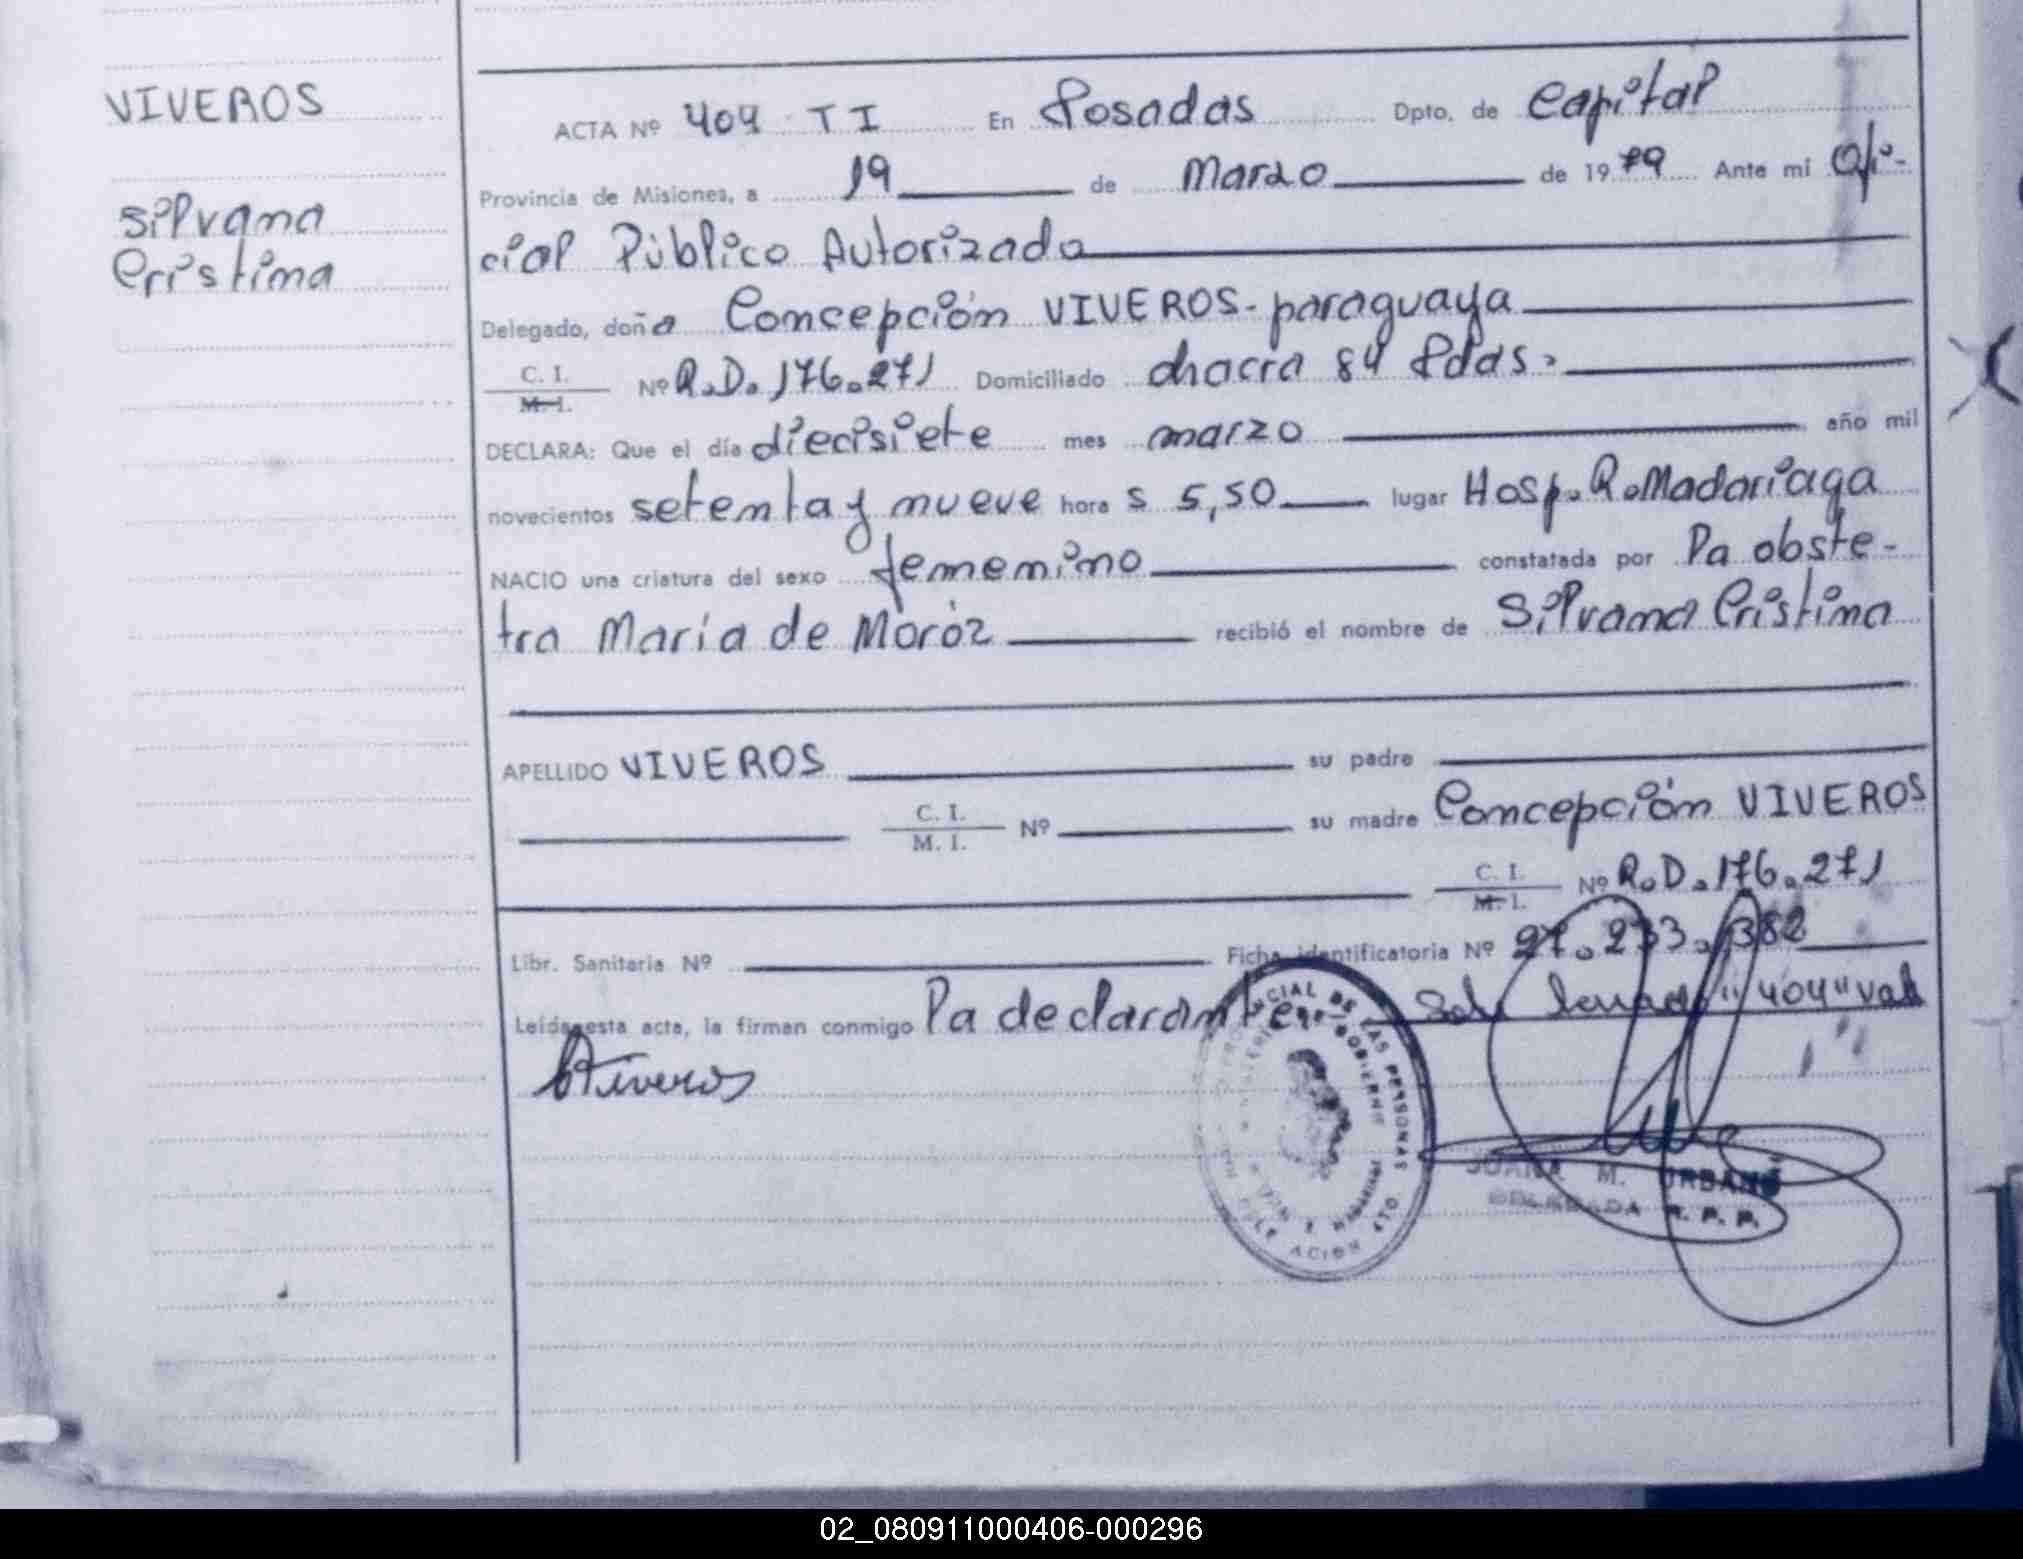 VIVEROS
Silvana
Cristina
ACTA Nº 404 TI En Posadas Dpto. de Capital
Provincia de Misiones, a 19 de Marzo de 1979 Ante mi Ofi-
cial Público Autorizado
Delegado, doña Concepción VIVEROS - paraguaya
C. I.
M. I. Nº R.D. 176.271 Domiciliado chacra 84 Pdas.
DECLARA: Que el día diecisiete mes marzo año mil
novecientos setenta y nueve hora s 5,50 lugar Hosp. R. Madariaga
NACIO una criatura del sexo femenino constatada por la obste-
tra María de Moróz recibió el nombre de Silvana Cristina
APELLIDO VIVEROS su padre
C. I.
M. I. Nº su madre Concepción VIVEROS
C. I.
M. I. Nº R.D. 176.271
Libr. Sanitaria Nº Ficha identificatoria Nº 27.233.382
Leída esta acta, la firman conmigo la declarante "404" vale
Viveros
PROVINCIAL DE LAS PERSONAS
GOBIERNO
JUANA M. URBANO
DELEGADA R. P. P.
02_080911000406-000296